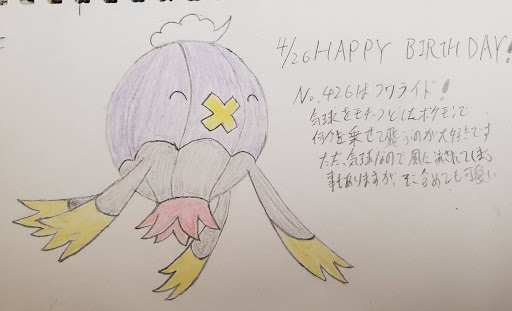 4/26 HAPPY BIRTHDAY!
No.426はフワライド!
気球をモチーフとしたポケモンで
何かを乗せて飛ぶのが大好きです
ただ、気球なので風に流されてしまう
事もありますが、そこ含めても可愛い